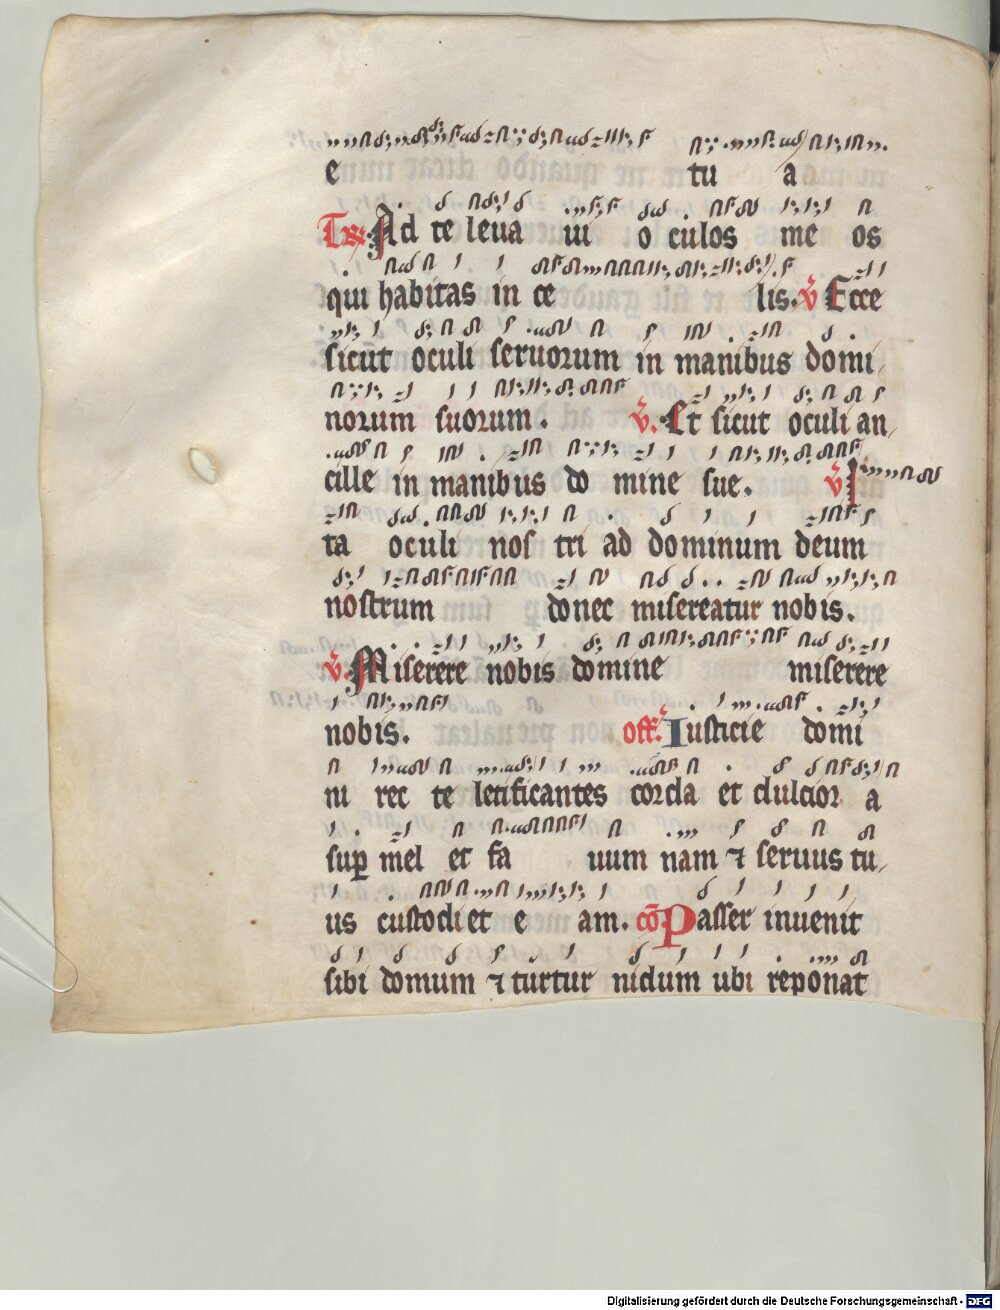 e tu a
Tr Ad te leua ui o culos me os
qui habitas in ce lis. v Ecce
sicut oculi seruorum in manibus domi
norum suorum. v. Et sicut oculi an
cille in manibus do mine sue. v I
ta oculi nos tri ad dominum deum
nostrum donec misereatur nobis.
v. Miserere nobis domine miserere
nobis. off. Iusticie domi
ni rec te letificantes corda et dulcior a
sup mel et fa uum nam ⁊ seruus tu
us custodiet e am. cō Passer inuenit
sibi domum ⁊ turtur nidum ubi reponat
Digitalisierung gefördert durch die Deutsche Forschungsgemeinschaft - DFG